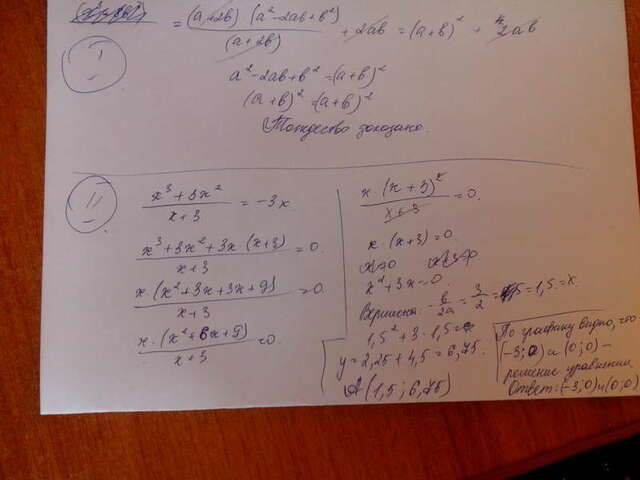 = (a+2b) (a²-2ab+b²) / (a+2b) + 2ab = (a+b)² + 2ab
I
a²-2ab+b² = (a+b)²
(a+b)² = (a+b)²
Тождество доказано.
II
x³+3x² / x+3 = -3x
x³+3x²+3x (x+3) / x+3 = 0.
x·(x²+3x+3x+9) / x+3 = 0
x·(x²+6x+9) / x+3 = 0
x·(x+3)² / x+3 = 0.
x·(x+3)=0.
x²+3x=0.
Вершина: -b/2a = 3/2 = 1,5. = x.
1,5²+3·1,5=
y=2,25+4,5=6,75.
A (1,5; 6,75)
По графику видно, что
(-3;0) и (0;0) –
решение уравнении
Ответ: (-3;0) и (0;0)